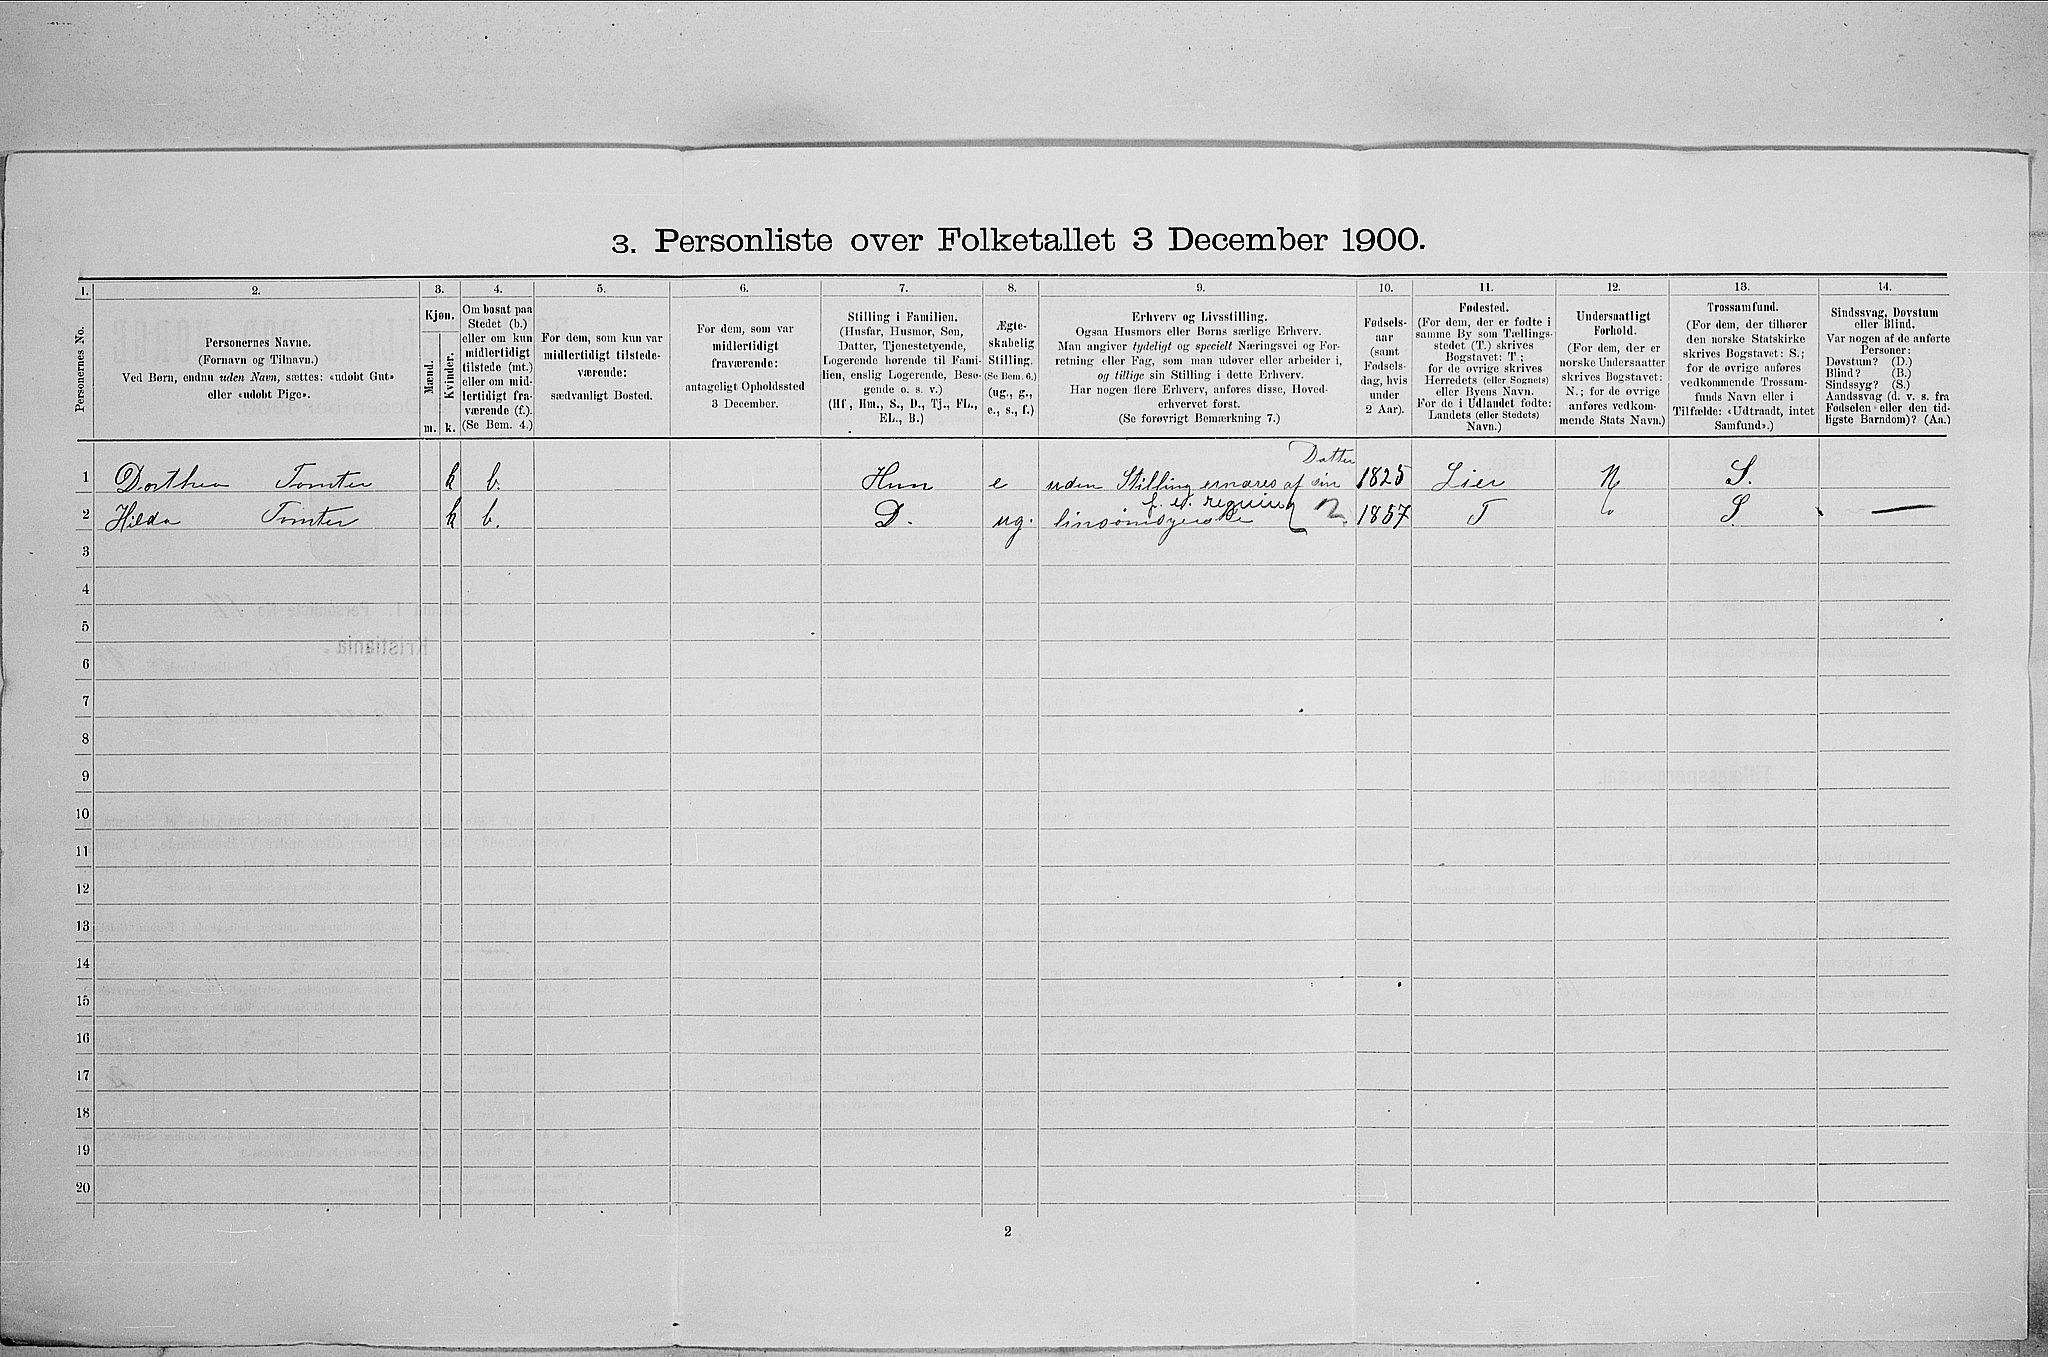 3. Personliste over Folketallet 3 December 1900.
1.
Personernes No.
2.
Personernes Navne.
(Fornavn og Tilnavn.)
Ved Børn, endnu uden Navn, sættes: «udøbt Gut»
eller «udøbt Pige».
3.
Kjøn.
Mænd.
Kvinder.
m. k.
4.
Om bosat paa
Stedet (b.)
eller om kun
midlertidigt
tilstede (mt.)
eller om mid-
lertidigt fra-
værende (f.).
(Se Bem. 4.)
5.
For dem, som kun var
midlertidigt tilstede-
værende:
sædvanligt Bosted.
6.
For dem, som var
midlertidigt
fraværende:
antageligt Opholdssted
3 December.
7.
Stilling i Familien.
(Husfar, Husmor, Søn,
Datter, Tjenestetyende,
Logerende hørende til Fami-
lien, enslig Logerende, Besø-
gende o. s. v.)
(Hf., Hm., S., D., Tj., FL.,
EL., B.)
8.
Ægte-
skabelig
Stilling.
(Se Bem. 6.)
(ug., g.,
e., s., f.)
9.
Erhverv og Livsstilling.
Ogsaa Husmors eller Børns særlige Erhverv.
Man angiver tydeligt og specielt Næringsvei og For-
retning eller Fag, som man udøver eller arbeider i,
og tillige sin Stilling i dette Erhverv.
Har nogen flere Erhverv, anføres disse, Hoved-
erhvervet først.
(Se forøvrigt Bemærkning 7.)
10.
Fødsels-
aar
(samt
Fødsels-
dag, hvis
under
2 Aar).
11.
Fødested.
(For dem, der er fødte i
samme By som Tællings-
stedet (T.) skrives
Bogstavet: T;
for de øvrige skrives
Herredets (eller Sognets)
eller Byens Navn.
For de i Udlandet fødte:
Landets (eller Stedets)
Navn.)
12.
Undersaatligt
Forhold.
(For dem, der er
norske Undersaatter
skrives Bogstavet:
N.; for de øvrige
anføres vedkom-
mende Stats Navn.)
13.
Trossamfund.
(For dem, der tilhører
den norske Statskirke
skrives Bogstavet: S.;
for de øvrige anføres
vedkommende Trossam-
funds Navn eller i
Tilfælde: «Udtraadt, intet
Samfund».)
14.
Sindssvag, Døvstum
eller Blind.
Var nogen af de anførte
Personer:
Døvstum? (D.)
Blind? (B.)
Sindssyg? (S.)
Aandssvag (d. v. s. fra
Fødselen eller den tid-
ligste Barndom)? (Aa.)
Datter
1 Dorthea Tomter k b. Hm e uden Stilling ernæres af sin 1825 Lier N S.
f. et. regning
2 Hilda Tomter k b. D. ug. linsömsyerske 2. 1857 T S —
3
4
5
6
7
8
9
10
11
12
13
14
15
16
17
18
19
20
2